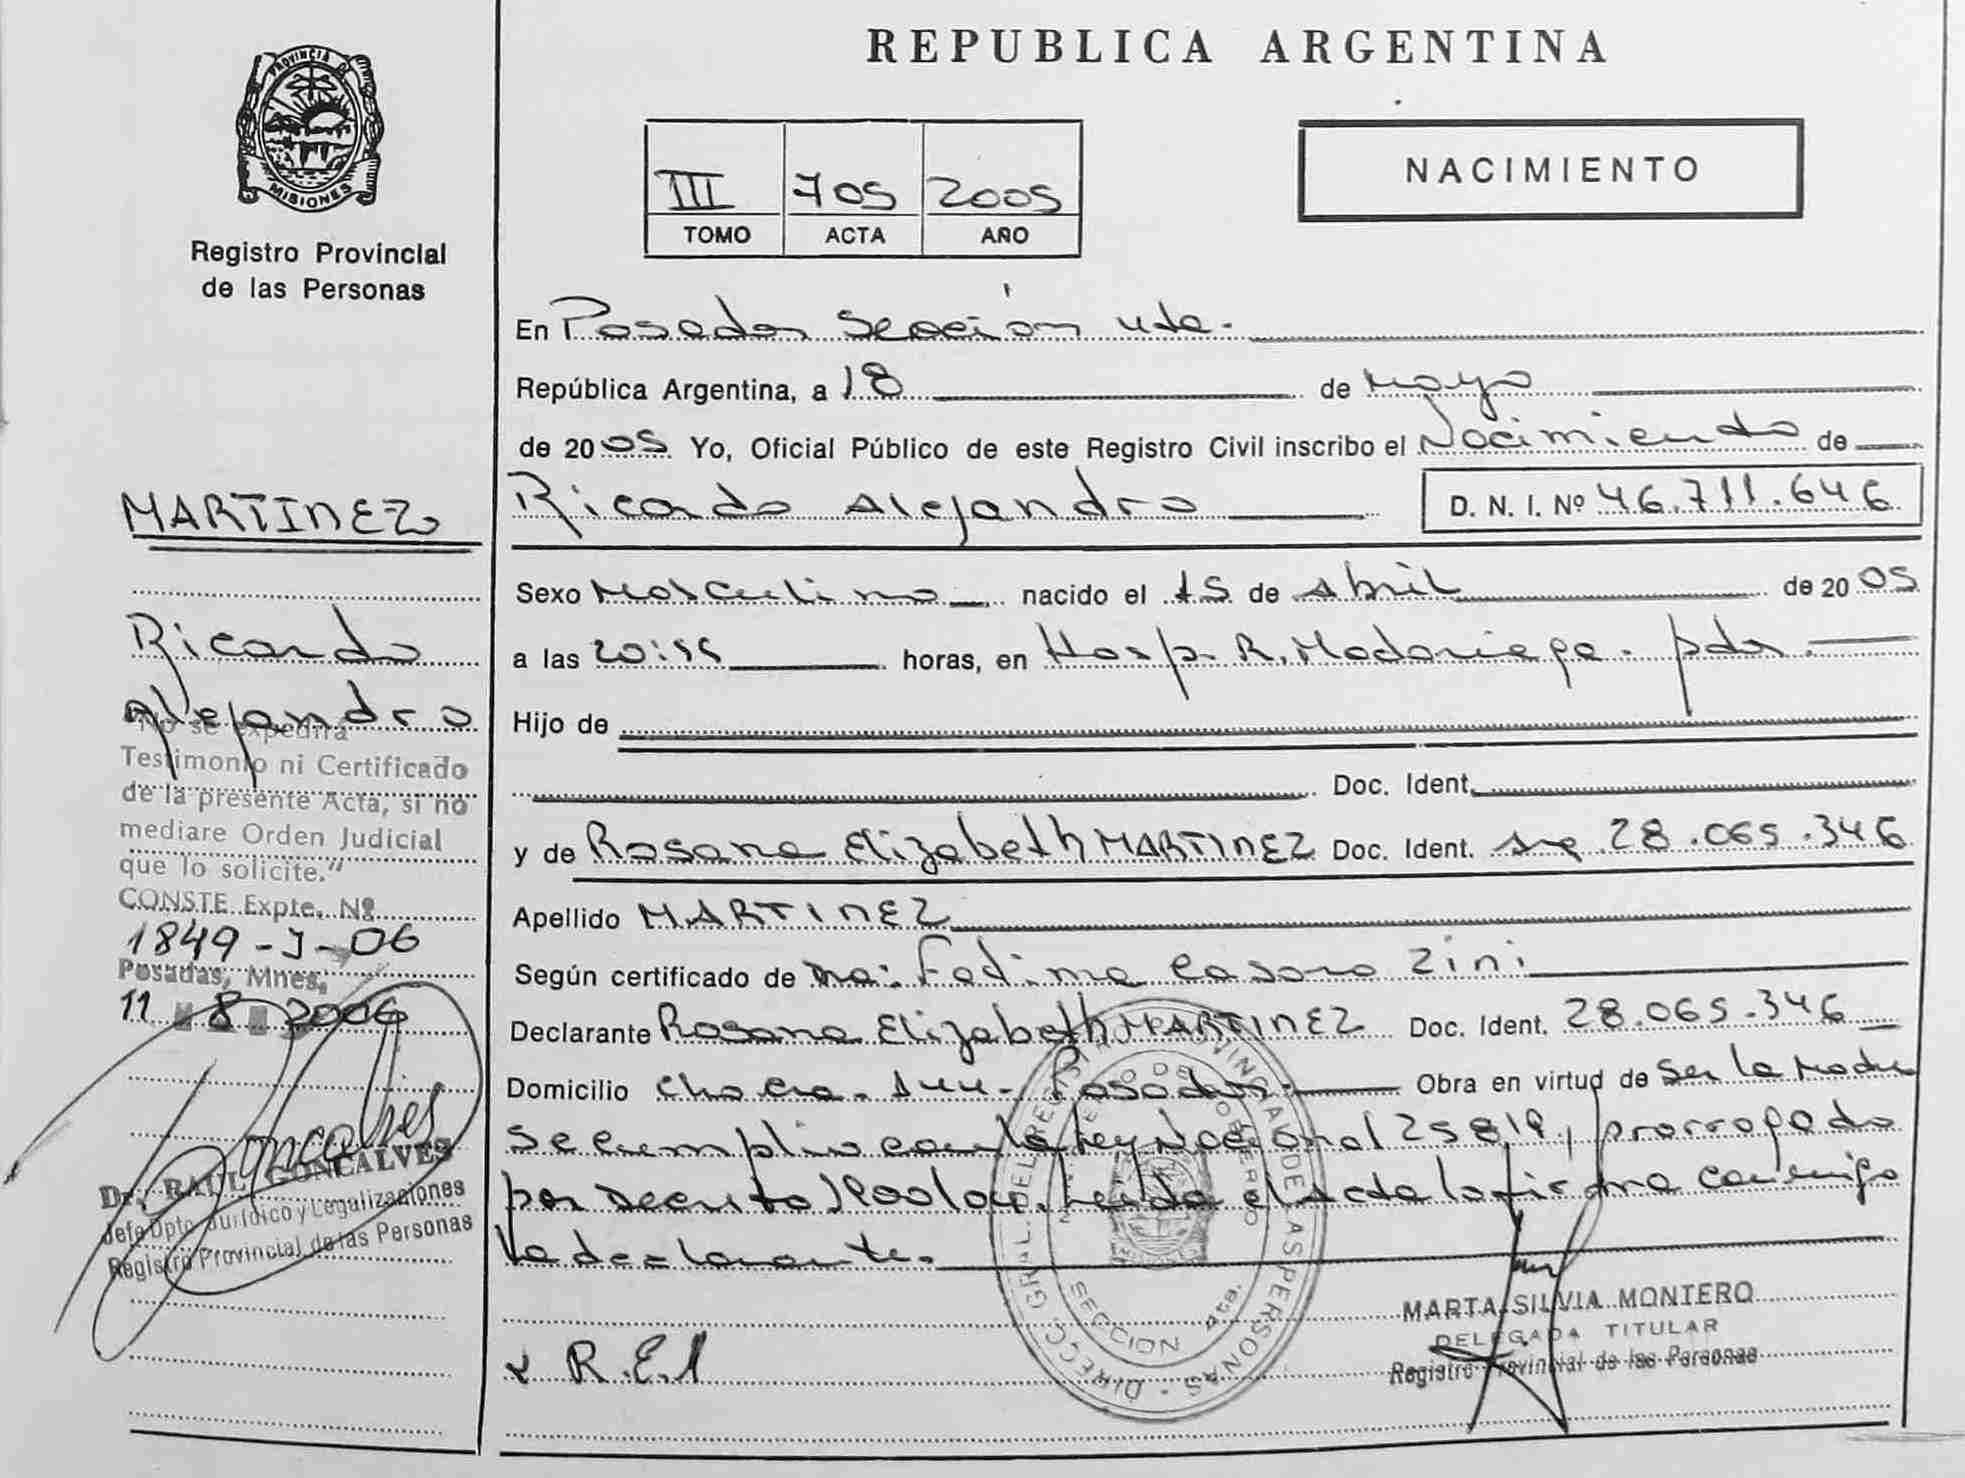 REPUBLICA ARGENTINA
PROVINCIA DE
MISIONES
Registro Provincial
de las Personas
III 705 2005
TOMO ACTA AÑO
NACIMIENTO
En Posadas Sección 4ta.
República Argentina, a 18 de Mayo
de 2005 Yo, Oficial Público de este Registro Civil inscribo el Nacimiento de
Ricardo Alejandro D. N. I. Nº 46.711.646
Sexo Masculino nacido el 15 de Abril de 2005
a las 20:55 horas, en Hosp. R. Madariaga. pdas.
Hijo de
Doc. Ident.
y de Rosana Elizabeth MARTINEZ Doc. Ident. 28.065.346
Apellido MARTINEZ
Según certificado de Fatima Zini
Declarante Rosana Elizabeth MARTINEZ Doc. Ident. 28.065.346
Domicilio Chacra. 144 - Posadas. Obra en virtud de Ser la Madre
Se cumplio con la Ley Nacional 25819, prorrogado
por Decreto 1900/04. Leida el Acta la firma conmigo
la declarante.
x R.E.M
MARTA SILVIA MONTERO
DELEGADA TITULAR
Registro Provincial de las Personas
DIRECC. GRAL. DEL REGISTRO PROVINCIAL DE LAS PERSONAS
SECCION 4ta.
MARTINEZ
Ricardo
Alejandro
"No se expedirá
Testimonio ni Certificado
de la presente Acta, si no
mediare Orden Judicial
que lo solicite."
CONSTE Expte. Nº
1849-J-06
Posadas, Mnes,
11 8 2006
Goncalves
Dr. RAUL GONCALVES
Jefe Dpto. Jurídico y Legalizaciones
Registro Provincial de las Personas